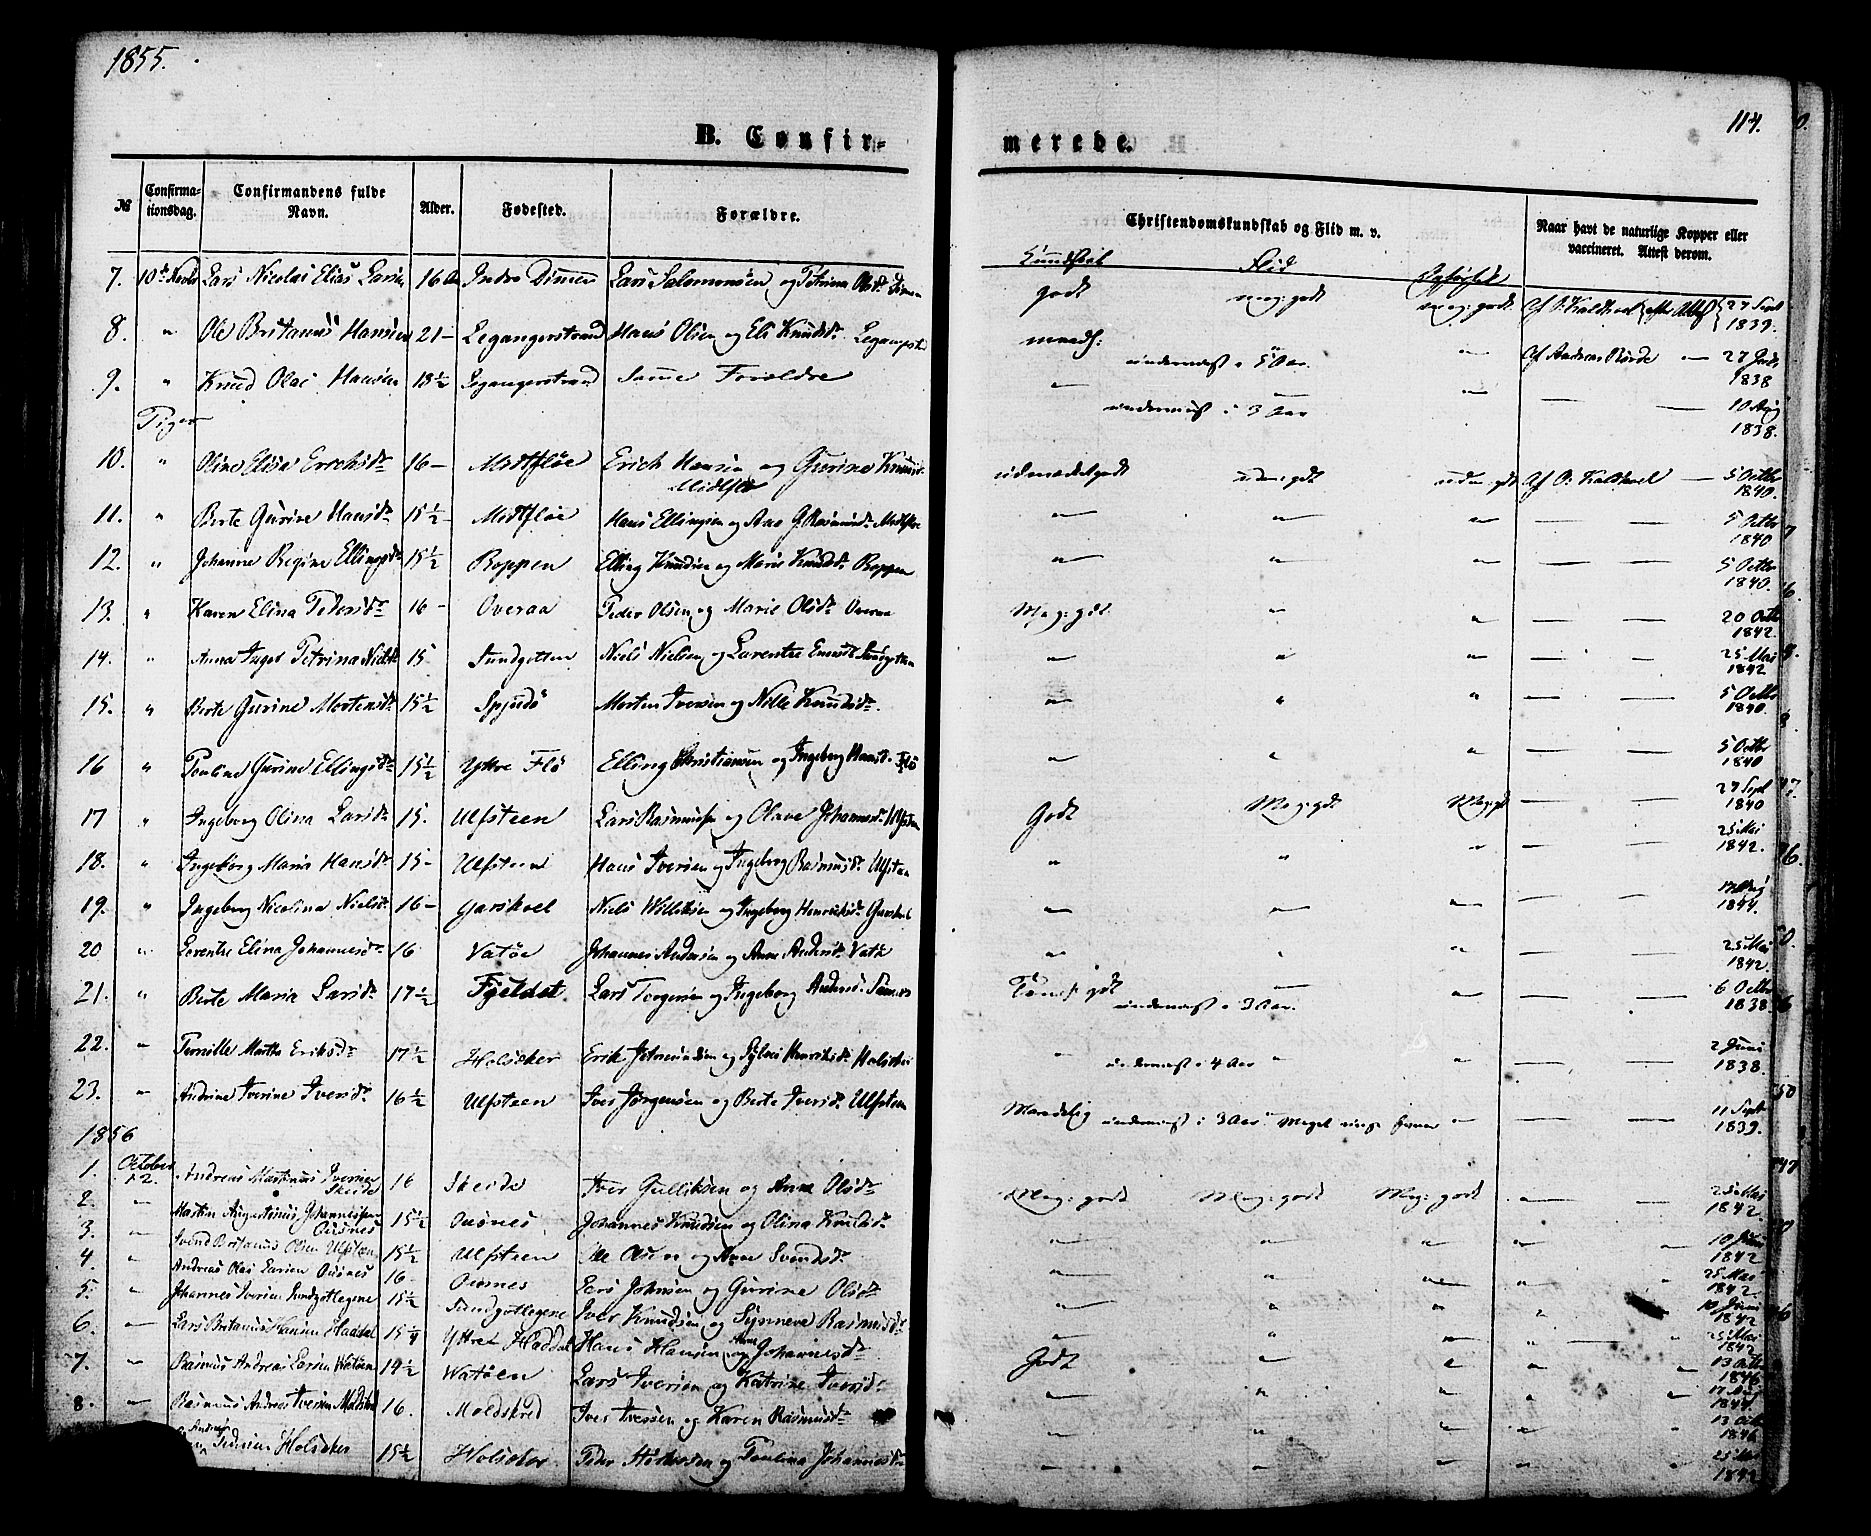 1855.
114.
B. Confir-
merede.
№ Confirmationsdag. Confirmandens fulde Navn. Alder. Fødested. Forældre. Christendomskundskab og Flid m. v. Naar havt de naturlige Kopper eller vaccineret. Attest derom.
Kundskab Flid
7. Lars Nicolai Elias Larsen 16 Indre Dimnen Lars Salomonsen og Petrina Olsdr. godt meg: godt meg: godt 27 Sept 1839.
8. " Ole Britanus Hansen 21 - Legangerstrand Hans Olsen og Eli Knudsdr. maadl: undervist i 5 Aar. " Af Andreas Rørde — 27 1838
9. " Knud Olai Hansen 18½ Legangerstrand Samme Forældre — undervist i 3 Aar — — 10 Aug 1838.
Piger
10. " Oline Elisa Erichsdr. 16 - Medtfløe Erich Hansen og Gurine udmærket godt udm: gdt udm: gdt Af O: Kaldhol — 5 Octbr 1840.
11. " Berte Gurine Hansdr. 15½ - Medtfløe Hans Ellingsen og Ane G. Rasmusdr. — " " — — 5 Octbr 1840
12. " Johanne Regine Ellingsdr. 15½ Roppen Elling Knudsen og Marie Knudsdr. Roppen — " " — — 5 Octbr 1840.
13. " Karen Elina Pedersdr. 16 - Overaa Peder Olsen og Marie Olsdr. Overaa Meg: gdt. " " — — 20 Octb 1842.
14. " Anna Inger Petrina Nielsdr. 15 Sundgotten Niels Nielsen og Laventse " " " — — 25 Mai 1842
15. " Berte Gurine Mortensdr. 15½ Spjudø Morten Iversen og Nille Knudsdr. " " " — — 5 Octbr 1840.
16 " Pauline Gurine Ellingsdr. 15½ Yttre Flø Elling Christiansen og Ingeborg Hansdr. Flø — " " — — 5 Octbr 1840
17 " Ingeborg Olina Larsdr. 15. Ulfsteen Lars Rasmussen og Olave Johannsdr. Ulfsten Godt Meg: gdt. Meg: gdt — — 27 Sept 1840
18. " Ingeborg Maria Hansdr. 15 - Ulfsteen Hans Iversen og Ingeborg Rasmusdr. Ulfsten " " " — — 25 Mai 1842.
19. " Ingeborg Nicolina Nielsdr. 16 - Garshol Niels Williksen og Ingeborg Henriksdr. — — " — — 1844.
20 " Laventse Elina Johannesdr. 16 Vatøe Johannes Andersen og Anne Andersdr. Vatøe " " " — — 25 Mai 1842.
21. " Berte Maria Larsdr. 17½ Fjeldet Lars Torgersen og Ingeborg Andersdr. gdt undervist i 3 Aar. — " — — 6 Octbr 1838
22. " Pernille Marthe Eriksdr. 17½ Holsæker Erik og Sylvei Henriksdr. Holseker " undervist i 4 Aar " " — — 2 Juni 1838.
23. " Andrine Iverine Iversdr. 16½ Ulfsteen Iver Jørgensen og Berte Iversdr. Ulfsteen Maadelig undervist i 3 Aar. " — — 11 Sept 1839.
1856
1. October 12. Andreas Martinus Iversen Skeide 16 Skeide Iver Gulliksen og Anne Olsdr. Meg: godt Meg: godt Meg: godt — — 25 Mai 1842.
2. " Martin Augustinus Johannessen Ousnes 15½ Ousnes Johannes Knudsen og Olina Knudsdr. — " " " " 10 Juni 1842
3. " Svend Britanus Olsen Ulfsteen 15½ Ulfsteen Ole Olsen og Anne Svendsdr. — " " " " 25 Mai 1842.
4. " Andreas Olai Larsen Ousnes 16 - Ousnes Lars Johnsen og Gurine Olsdr. — " " " 10 Juni 1842
5. " Johannes Iversen Sundgotlegene 15½ Sundgotlegene Iver Knudsen og Synneve Rasmusdr. — " " " " 25 Mai 1842
6. " Lars Britanus Hansen Haddal 15¼ Yttre Haddal Hans Hansen og Anne Johannesdr. Godt — " " " 13 Octb 1846
7. " Rasmus Andreas Larsen Watøen 19½ Watøen Lars Iversen og Katrine Iversdr. — " " " " 17 1844
8. " Rasmus Andreas Iversen 16. Moldskred Iver Iversen og Karen Rasmusdr. — " " " 13 Octb 1846
Andreas Pedersen Holseker 15½ Holseker Peder og Paulina — " " " " 25 1842